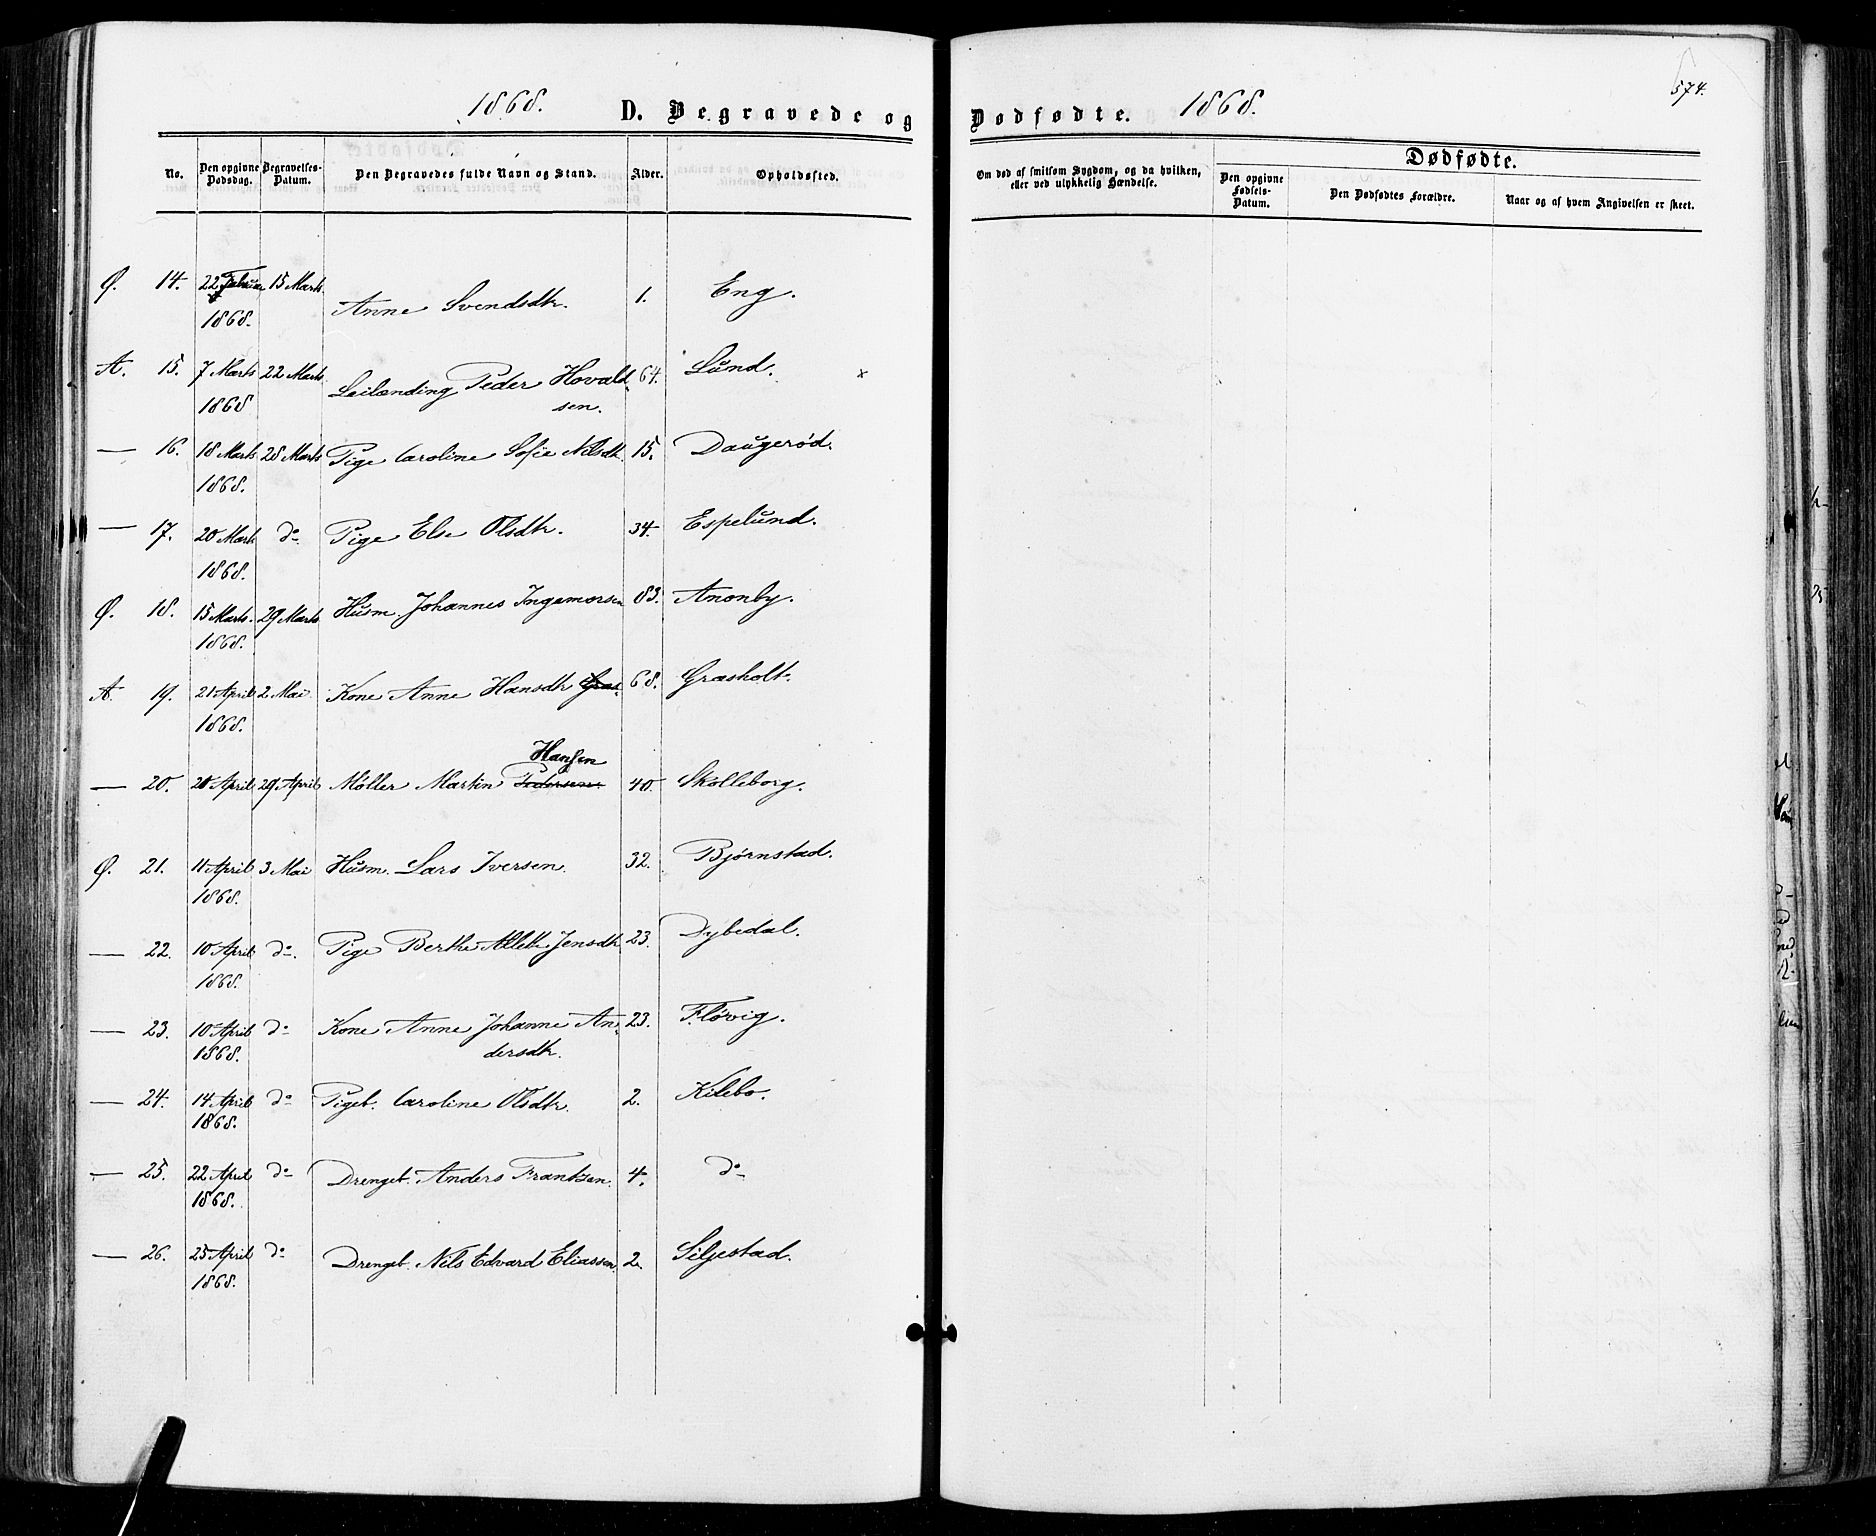 574.
1868. D. Begravede og Dødfødte. 1868.
No. Den opgivne Dødsdag. Begravelses-Datum. Den Begravedes fulde Navn og Stand. Alder. Opholdssted. Om død af smitsom Sygdom, og da hvilken, eller ved ulykkelig Hændelse. Dødfødte.
Den opgivne Fødsels-Datum. Den Dødfødtes Forældre. Naar og af hvem Angivelsen er skeet.
Ø. 14. 22 Februar 15 Marts Anne Svendsdtr. 1. Eng.
1868.
A. 15. 7 Marts 22 Marts Leilænding Peder Hovald- 64. Lund. x
1868 sen.
— 16. 18 Marts 28 Marts Pige Caroline Sofie Nilsdtr. 15. Daugerød.
1868.
— 17. 20 Marts do Pige Else Olsdtr. 34. Espelund.
1868.
Ø. 18. 15 Marts. 29 Marts Husm. Johannes Ingemorsen 83. Anonby.
1868.
A. 19. 21 April 2 Mai Kone Anne Hansdtr Gras 68. Grasholt.
1868.
Hansen
— 20. 20 April 29 April Møller Martin Pedersen. 40. Skolleborg.
Ø. 21. 11 April 3 Mai Husm. Lars Iversen. 32. Bjørnstad.
1868.
— 22. 10 April do. Pige Berthe Alleth. Jensdtr 23. Dybedal.
1868.
— 23. 10 April do Kone Anne Johanne An- 23. Fløvig.
1868. dersdtr.
— 24. 14 April do Pigeb. Caroline Olsdtr. 2. Kilebo.
1868.
— 25. 22 April do Drengeb. Anders Frantzen. 4. do
1868.
— 26. 25 April do Drengeb. Nils Edvard Eliassen. 2. Siljestad.
1868.